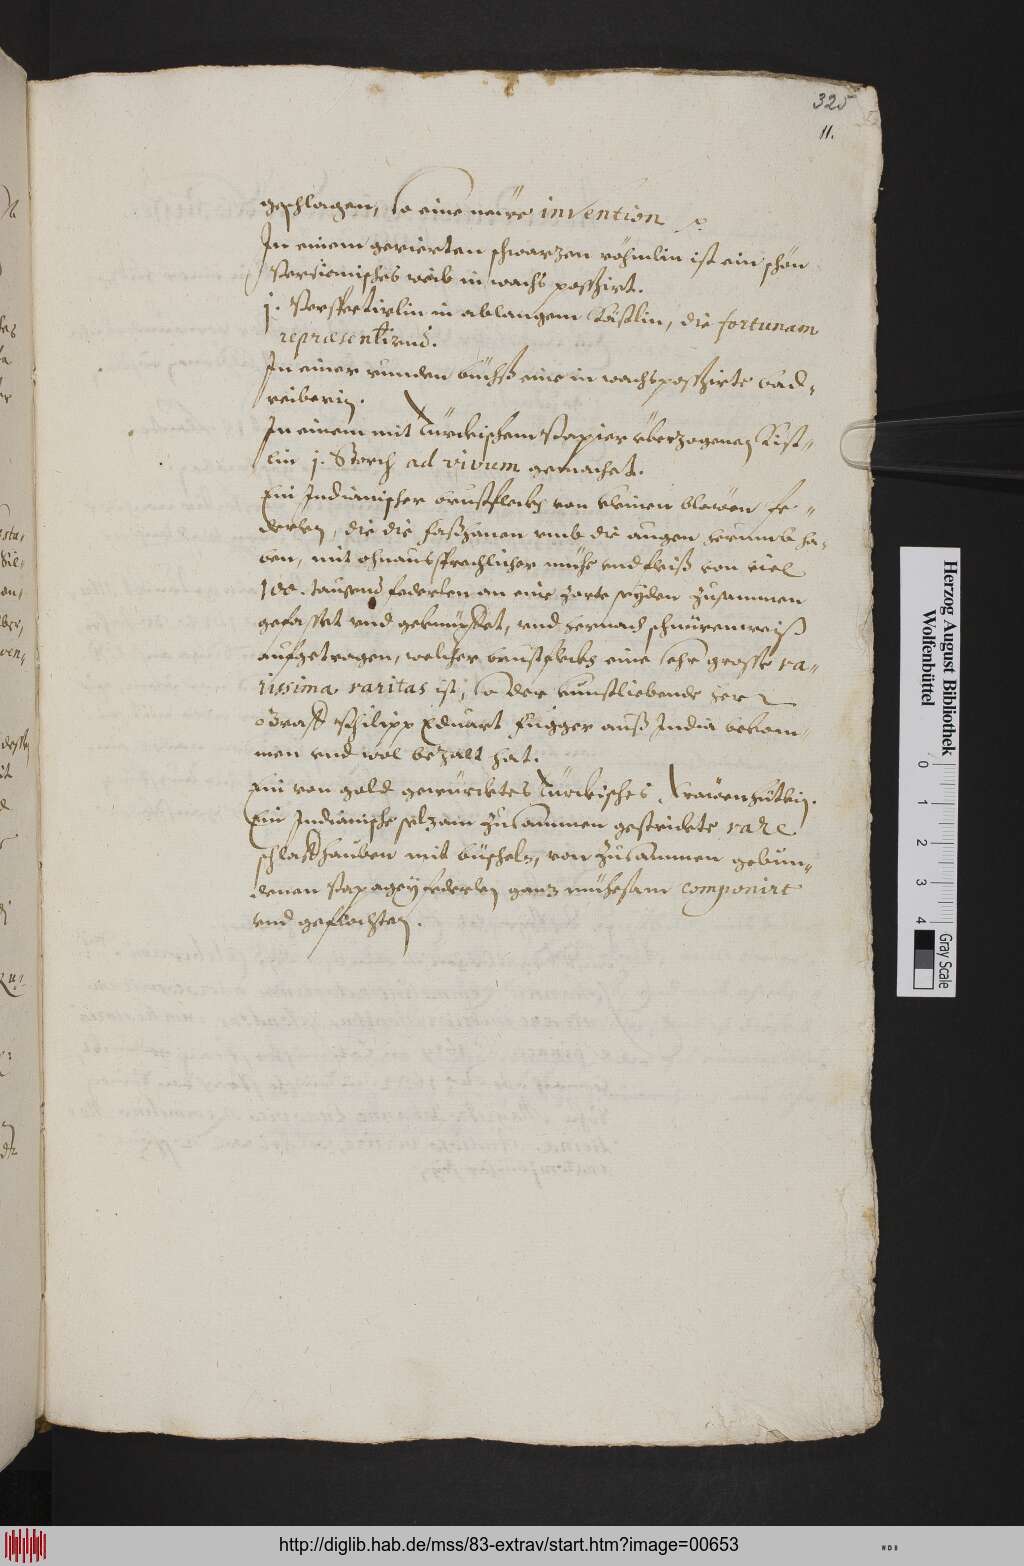 325
11.
geschlagen, so eine neüwe invention ꝛc.
In einem gevierten schwarzen rähmlin ist ein schön
Persionisches weib in wachs possirt.
j. Perspectivlin in ablangem Kästlin, die fortunam
repræsentirend.
In einer runden büchß eine in wachs possirte bad-
reiberin.
In einem mit Türckischem Papier überzogenen Kist-
lin j. Storch ad vivum gemachet.
Ein Indianischer brustflecks von kleinen blawen fe-
derlen, die die faßzanen umb die augen herumb ha-
ben, mit ohnaussprechlicher mühe und fleiß von viel
100. tausend federlen an eine zarte seyden zusammen
gefasset und geknüpffet, und hernach schnürenweiß
aufgetragen, welcher brustflecks eine sehr grosse ra-
rissima raritas ist, so der kunstliebende herr
Graff Philipp Eduart Fugger auß India bekom-
men und wol bezalt hat.
Ein von gold gewürcktes Türckisches Frawenhütlin.
Ein Indianische selzam zusammen gestrickte rare
schlaffhauben mit büscheln, von zusammen gebun-
denen Papageyfederlen ganz mühesam componirt
und geflochten.
Herzog August Bibliothek
Wolfenbüttel
0 1 2 3 4
Gray Scale
http://diglib.hab.de/mss/83-extrav/start.htm?image=00653